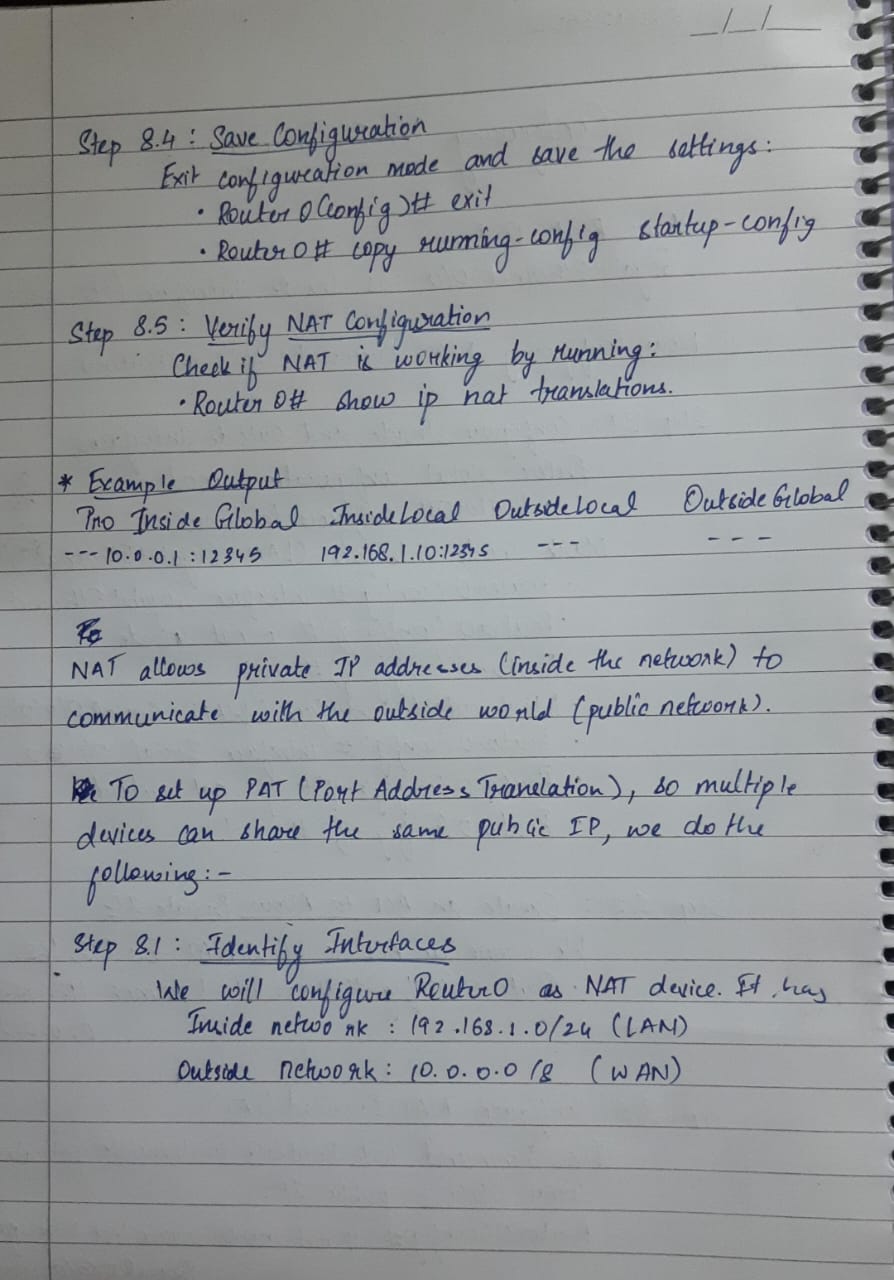 _/_/_
Step 8.4 : Save Configuration
Exit configuration mode and save the settings:
• Router 0(config)# exit
• Router 0# copy running-config startup-config
Step 8.5 : Verify NAT Configuration
Check if NAT is working by running:
• Router 0# show ip nat translations.
* Example Output
Pro Inside Global Inside Local Outside Local Outside Global
--- 10.0.0.1 :12345 192.168.1.10:12345 --- ---
NAT allows private IP addresses (inside the network) to
communicate with the outside world (public network).
To set up PAT (Port Address Translation), so multiple
devices can share the same public IP, we do the
following:-
Step 8.1 : Identify Interfaces
We will configure Router0 as NAT device. It has
Inside network : 192.168.1.0/24 (LAN)
Outside network : 10.0.0.0/8 (WAN)